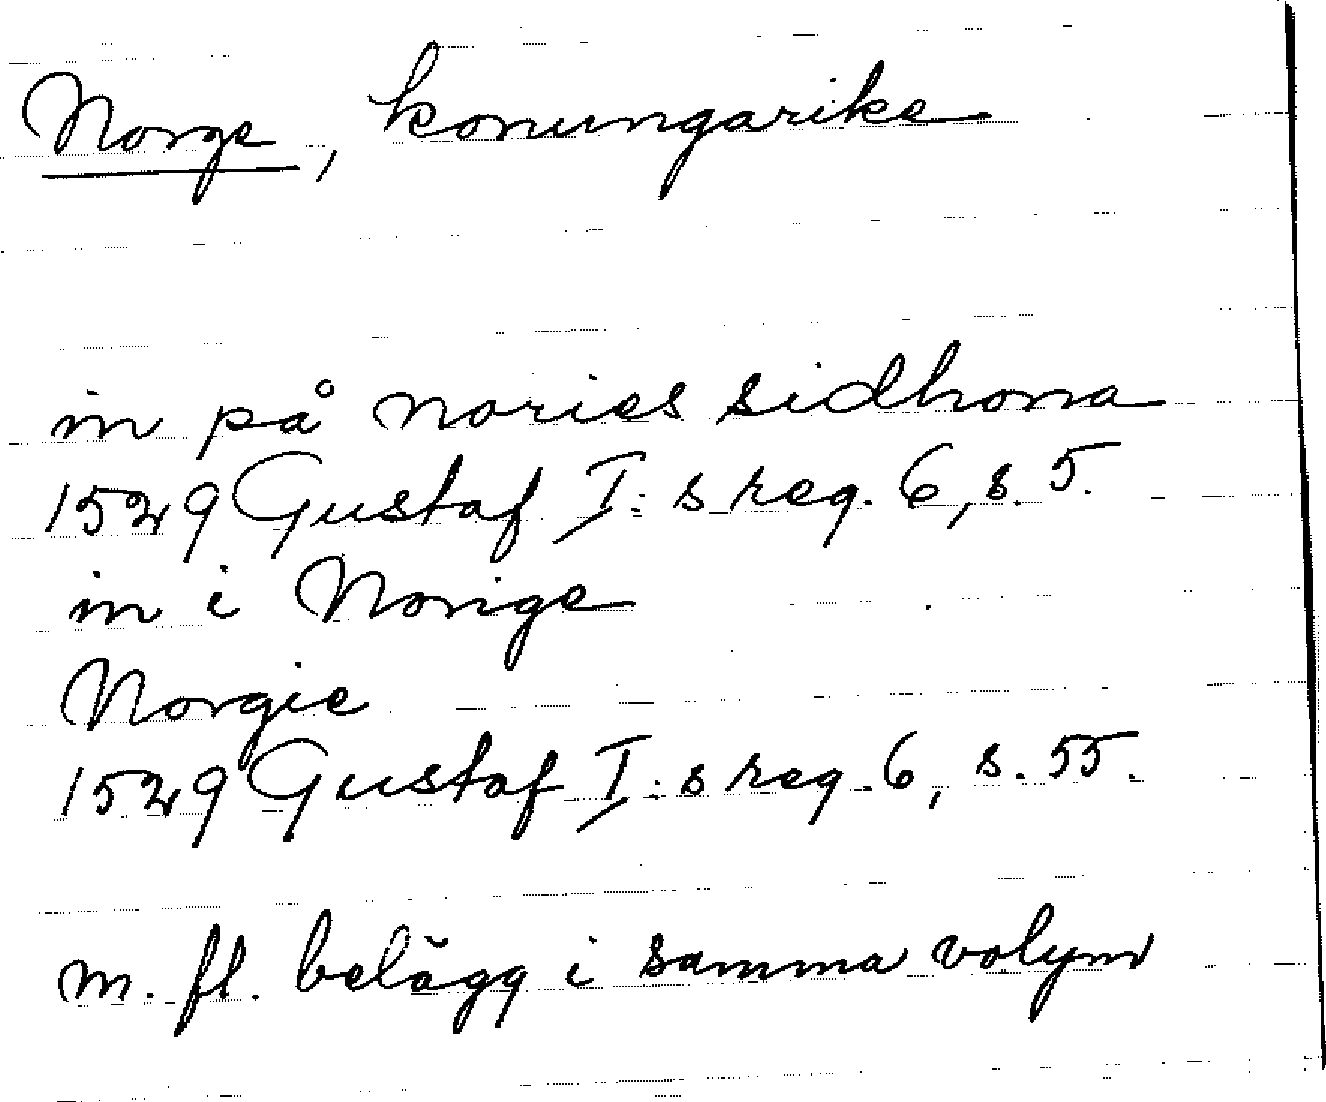 Norge, konungarike
in på nories sidhona
1529 Gustaf I:s reg. 6, s. 5.
in i Norige
Norgie
1529 Gustaf I:s reg. 6, s. 55.
m. fl. belägg i samma volym